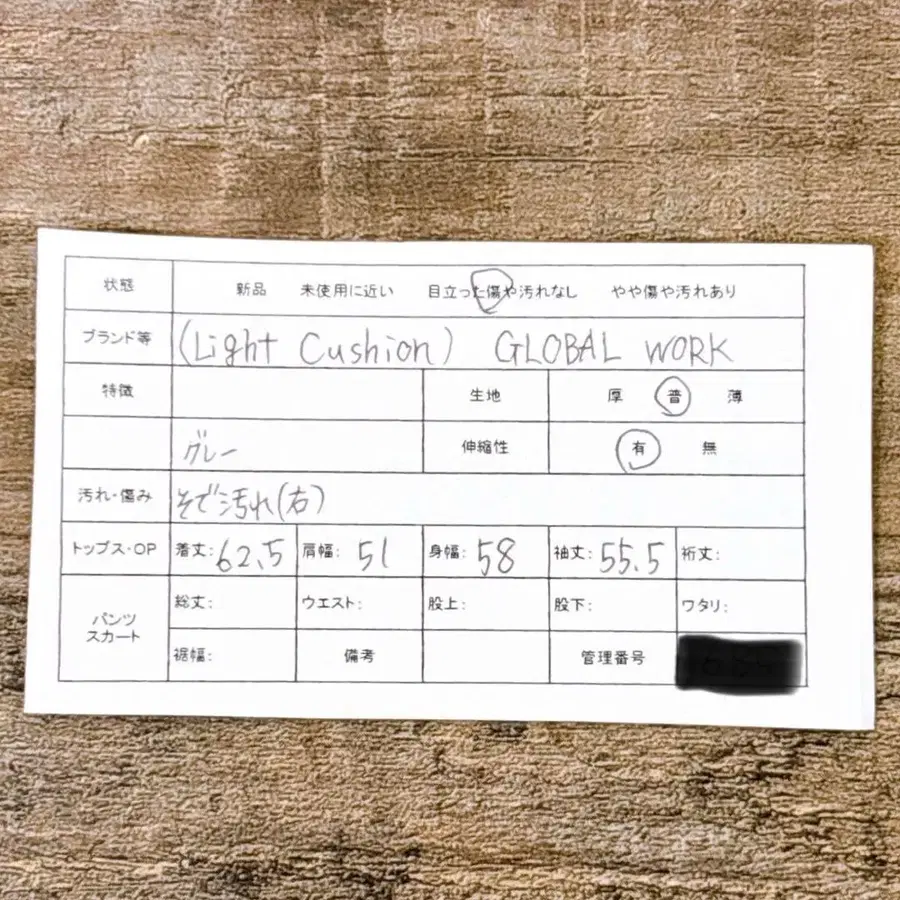 状態 新品 未使用に近い 目立った傷や汚れなし やや傷や汚れあり
ブランド等 (Light Cushion) GLOBAL WORK
特徴 生地 厚 普 薄
グレー 伸縮性 有 無
汚れ・傷み そで汚れ(右)
トップス・OP 着丈: 62.5 肩幅: 51 身幅: 58 袖丈: 55.5 裄丈:
パンツ スカート 総丈: ウエスト: 股上: 股下: ワタリ:
裾幅: 備考 管理番号